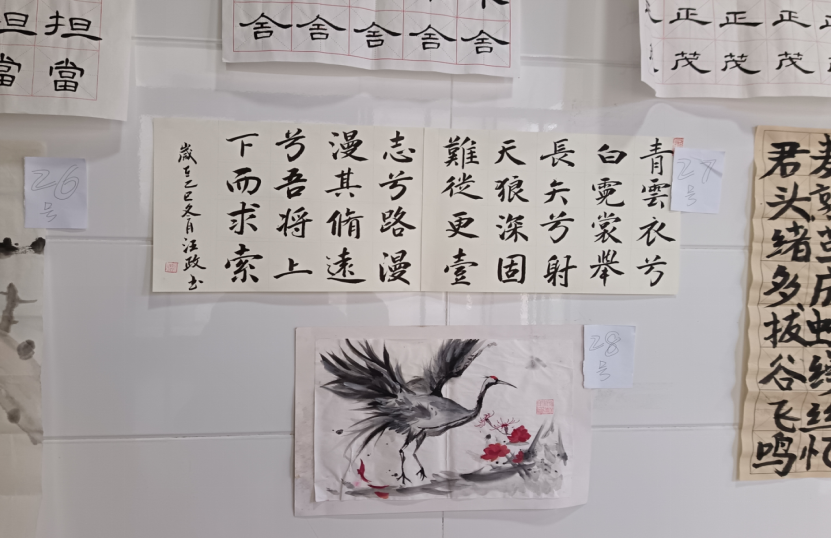 担
當
舍舍舍舍舍
正正正
茂茂茂
26
号
27
号
青雲衣兮
白霓裳舉
長矢兮射
天狼深固
難徙更壹
志兮路漫
漫其脩遠
兮吾将上
下而求索
歲在乙巳冬月汪政书
28
号
君头绪多拔谷飞鸣